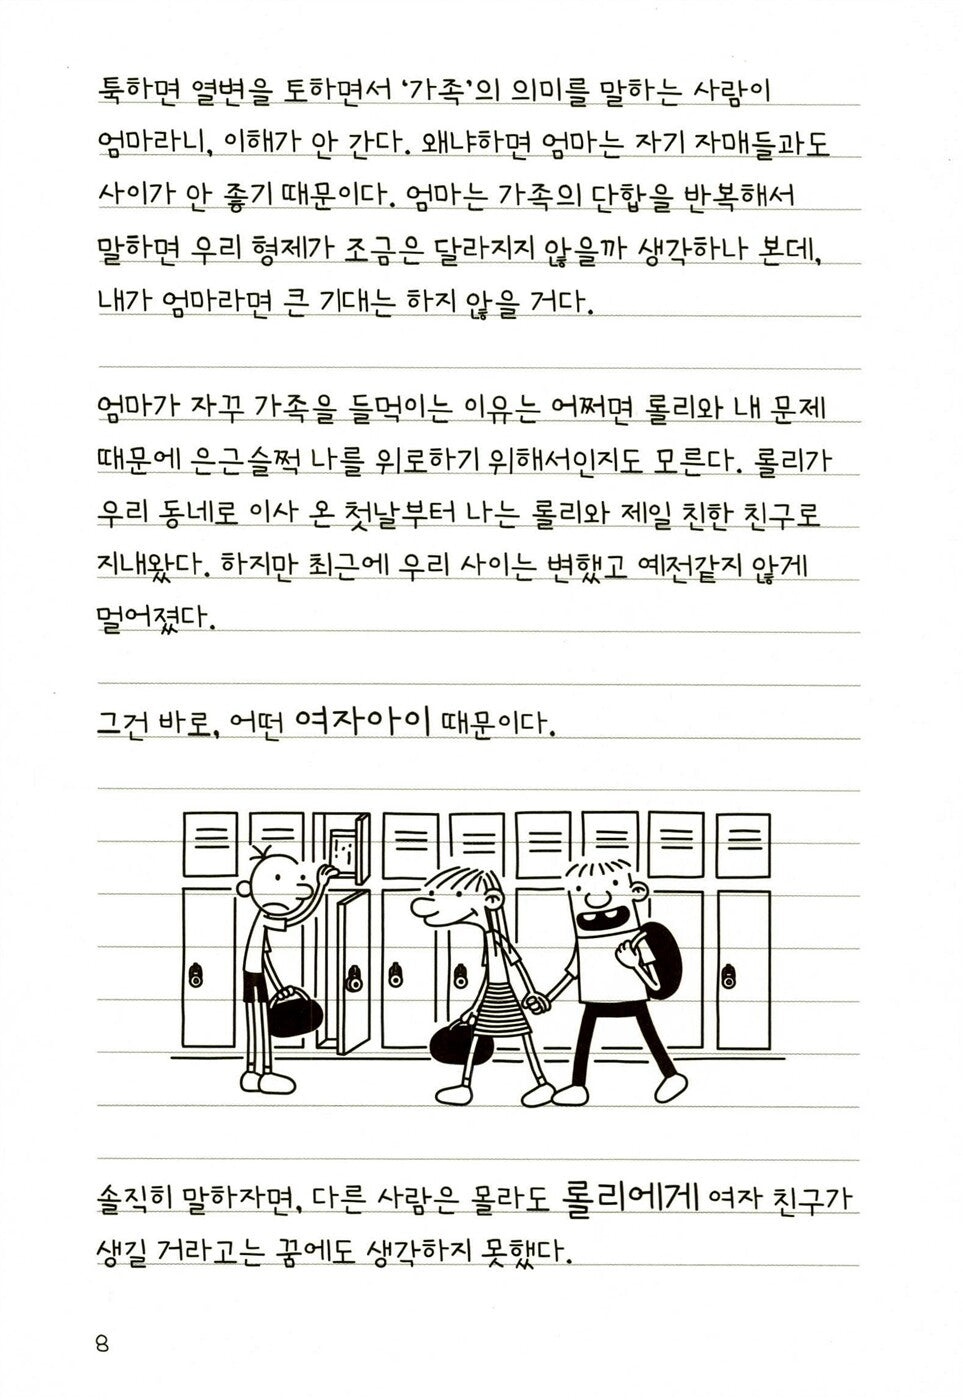 툭하면 열변을 토하면서 ‘가족’의 의미를 말하는 사람이
엄마라니, 이해가 안 간다. 왜냐하면 엄마는 자기 자매들과도
사이가 안 좋기 때문이다. 엄마는 가족의 단합을 반복해서
말하면 우리 형제가 조금은 달라지지 않을까 생각하나 본데,
내가 엄마라면 큰 기대는 하지 않을 거다.
엄마가 자꾸 가족을 들먹이는 이유는 어쩌면 롤리와 내 문제
때문에 은근슬쩍 나를 위로하기 위해서인지도 모른다. 롤리가
우리 동네로 이사 온 첫날부터 나는 롤리와 제일 친한 친구로
지내왔다. 하지만 최근에 우리 사이는 변했고 예전같지 않게
멀어졌다.
그건 바로, 어떤 여자아이 때문이다.
솔직히 말하자면, 다른 사람은 몰라도 롤리에게 여자 친구가
생길 거라고는 꿈에도 생각하지 못했다.
8